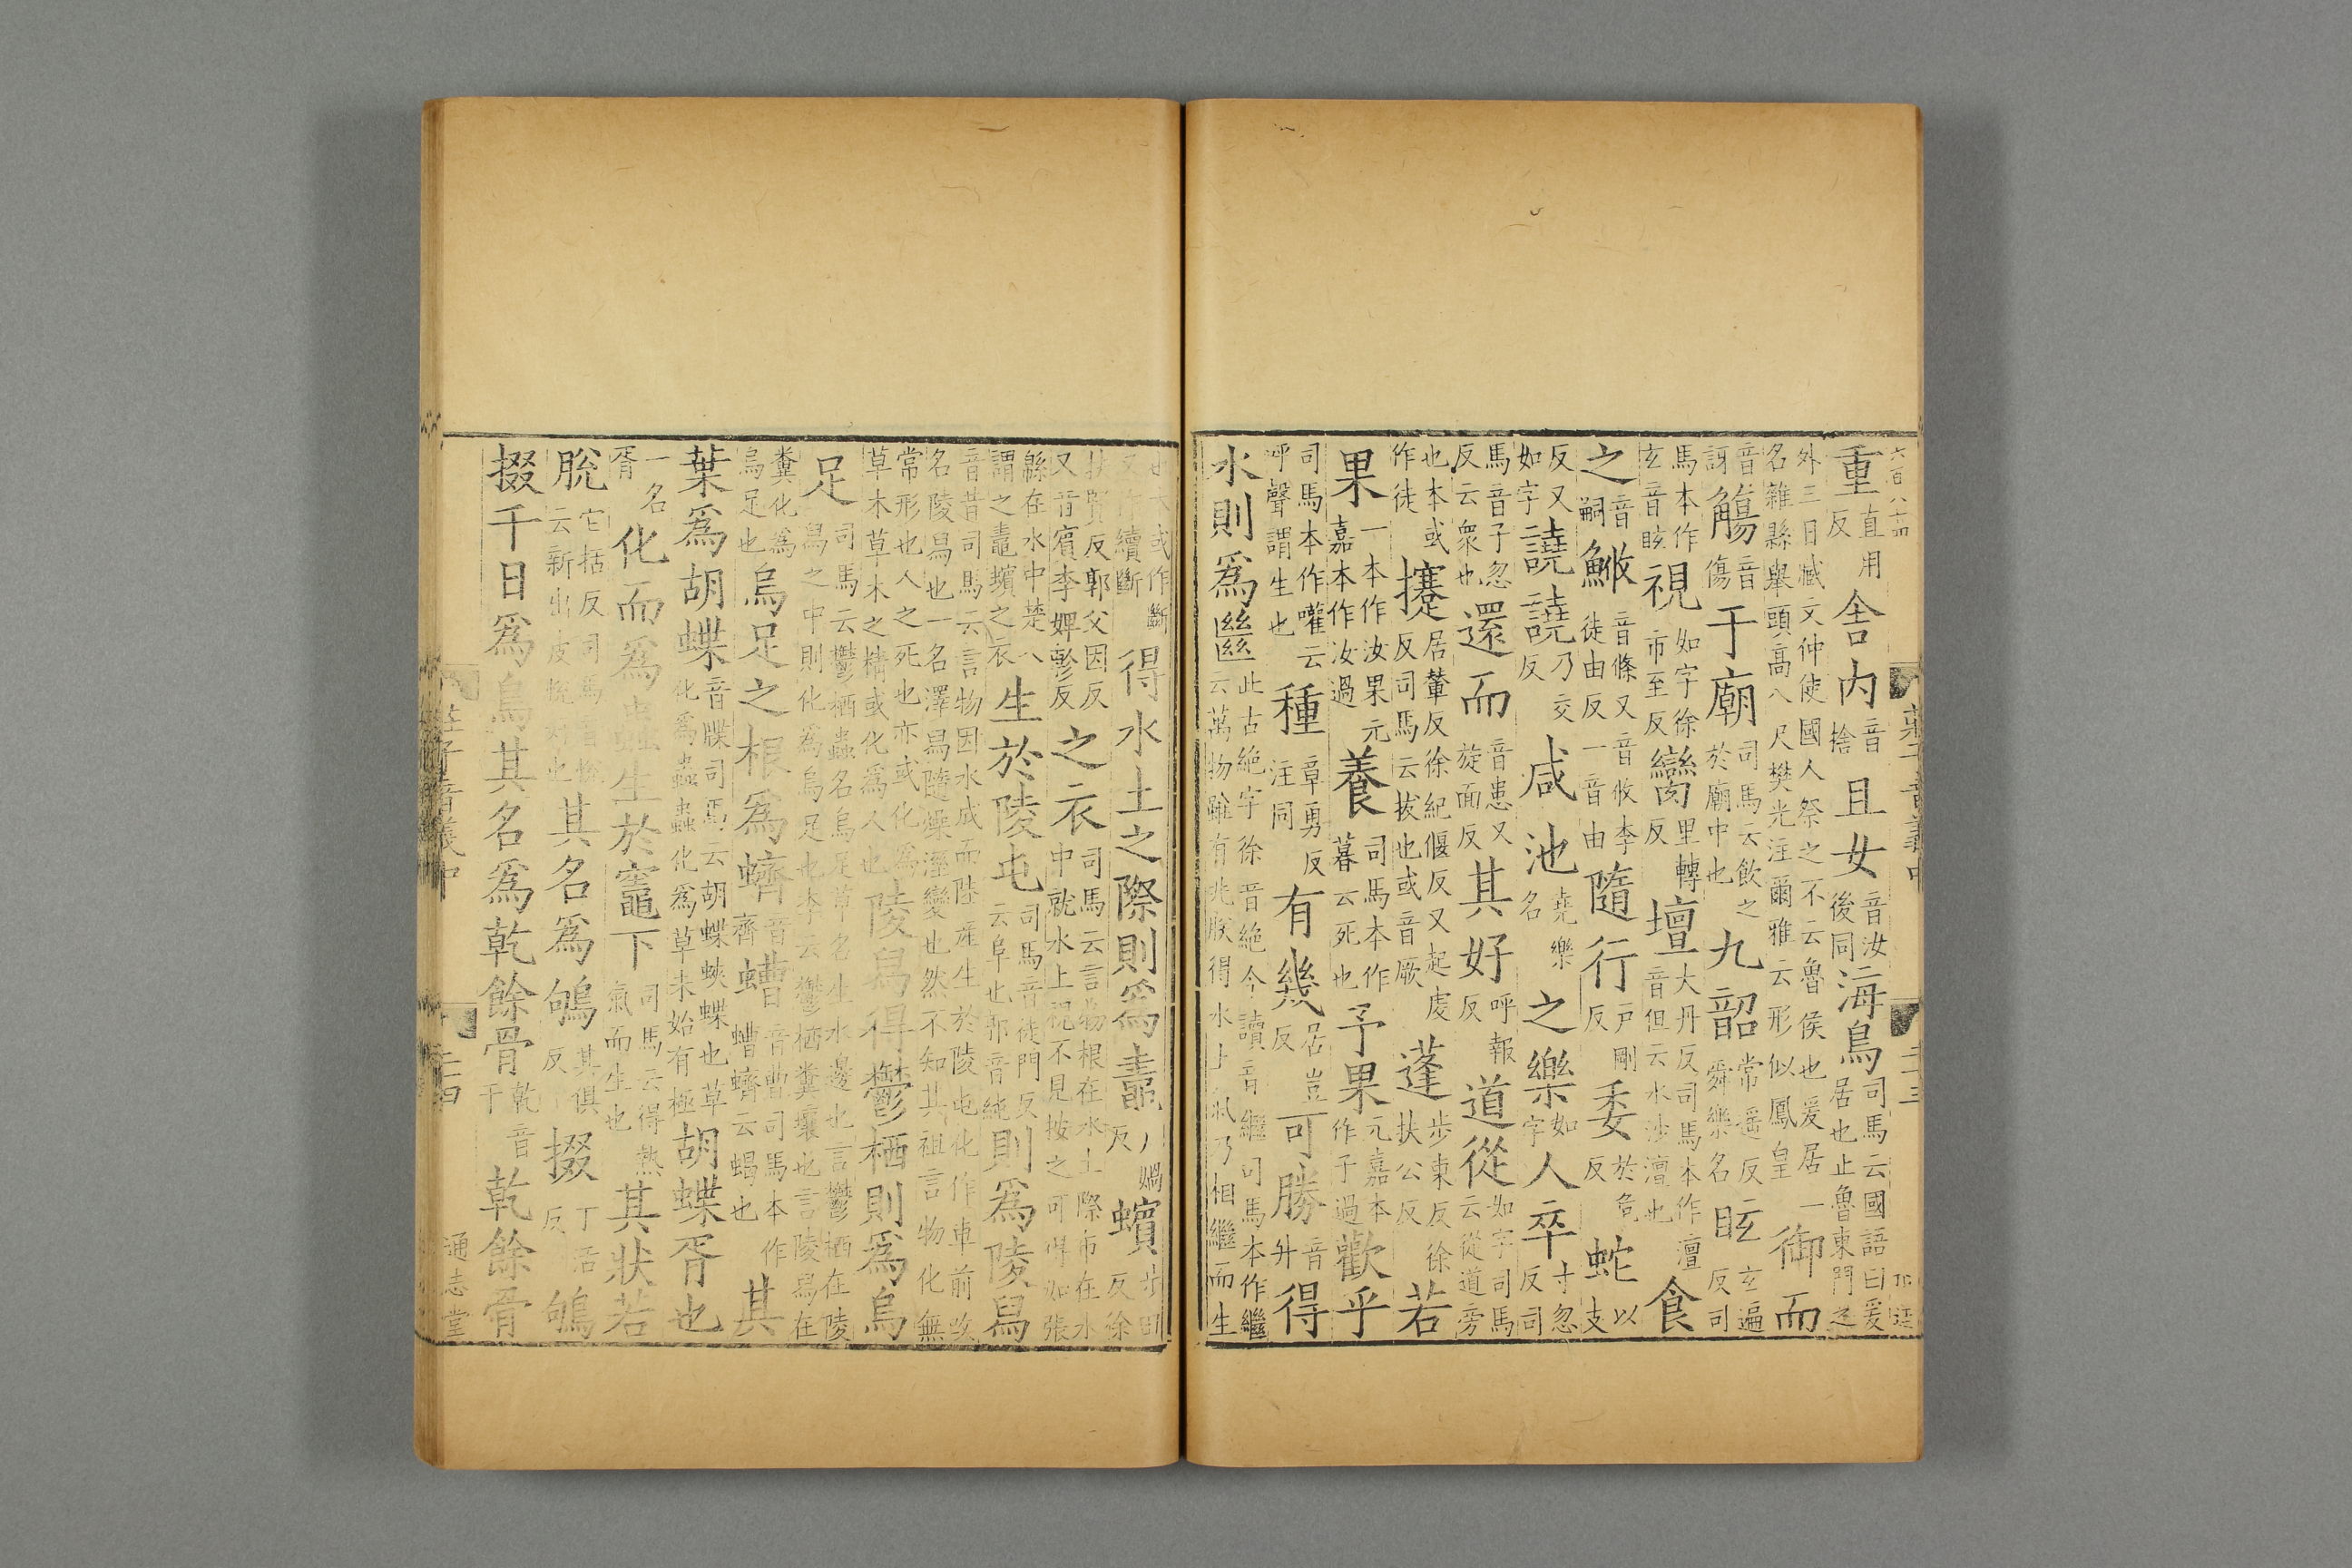 重直用反舍内音捨且女音汝後同海鳥司馬云國語曰爰居也止魯東門之
外三日臧文仲使國人祭之不云魯侯也爰居一名雜縣舉頭高八尺樊光注爾雅云形似鳳皇御而
音訝觴音傷于廟司馬云飲之於廟中也九韶常遥反舜樂名眩玄遍反司
馬本作玄音眩視如字徐市至反臠里轉反壇大丹反司馬本作澶音但云水沙澶也食
之音嗣鰷音條又音攸李徒由反一音由隨行戶剛反委於危反蛇以支
反又如字譊譊乃交反咸池堯樂名之樂如字人卒寸忽反司
馬音子忽反云衆也還而音患又旋面反其好呼報反道從如字司馬云從道旁
也本或作徒攓居輦反徐紀偃反又起虔反司馬云拔也或音厥蓬步東反徐扶公反若
果一本作汝果元嘉本作汝過養司馬本作暮云死也予果元嘉本作子過歡乎
司馬本作嚾云呼聲謂生也種章勇反注同有幾居豈反可勝音升得
水則爲㡭此古絕字徐音絕今讀音繼司馬本作繼云萬物雖有兆朕得水土氣乃相繼而生
也本或作斷又作續斷得水土之際則爲鼃戶媧反蠙步田反徐
扶賢反郭父因反又音賓李婢軫反之衣司馬云言物根在水土際布在水中就水上視不見按之可得如張
緜在水中楚人謂之鼃蠙之衣生於陵屯司馬音徒門反云阜也郭音純則爲陵舄
音昔司馬云言物因水成而陸產生於陵屯化作車前改名陵舄也一名澤舄隨燥濕變也然不知其祖言物化無
常形也人之死也亦或化爲草木草木之精或化爲人也陵舄得鬱栖則爲烏
足司馬云鬱栖蟲名烏足草名生水邊也言鬱栖在陵舄之中則化爲烏足也李云鬱栖糞壤也言陵舄在
糞化爲烏足也烏足之根爲蠐音齊螬音曹司馬本作螬蠐云蝎也其
葉爲胡蝶音牒司馬云胡蝶蛺蝶也草化爲蟲蟲化爲草未始有極胡蝶胥也
一名胥化而爲蟲生於竈下司馬云得熱氣而生也其狀若
脫它括反司馬音悅云新出皮悅好也其名爲鴝其俱反掇丁活反鴝
掇千日爲鳥其名爲乾餘骨乾音干乾餘骨
莊子音義中
二十四
通志堂